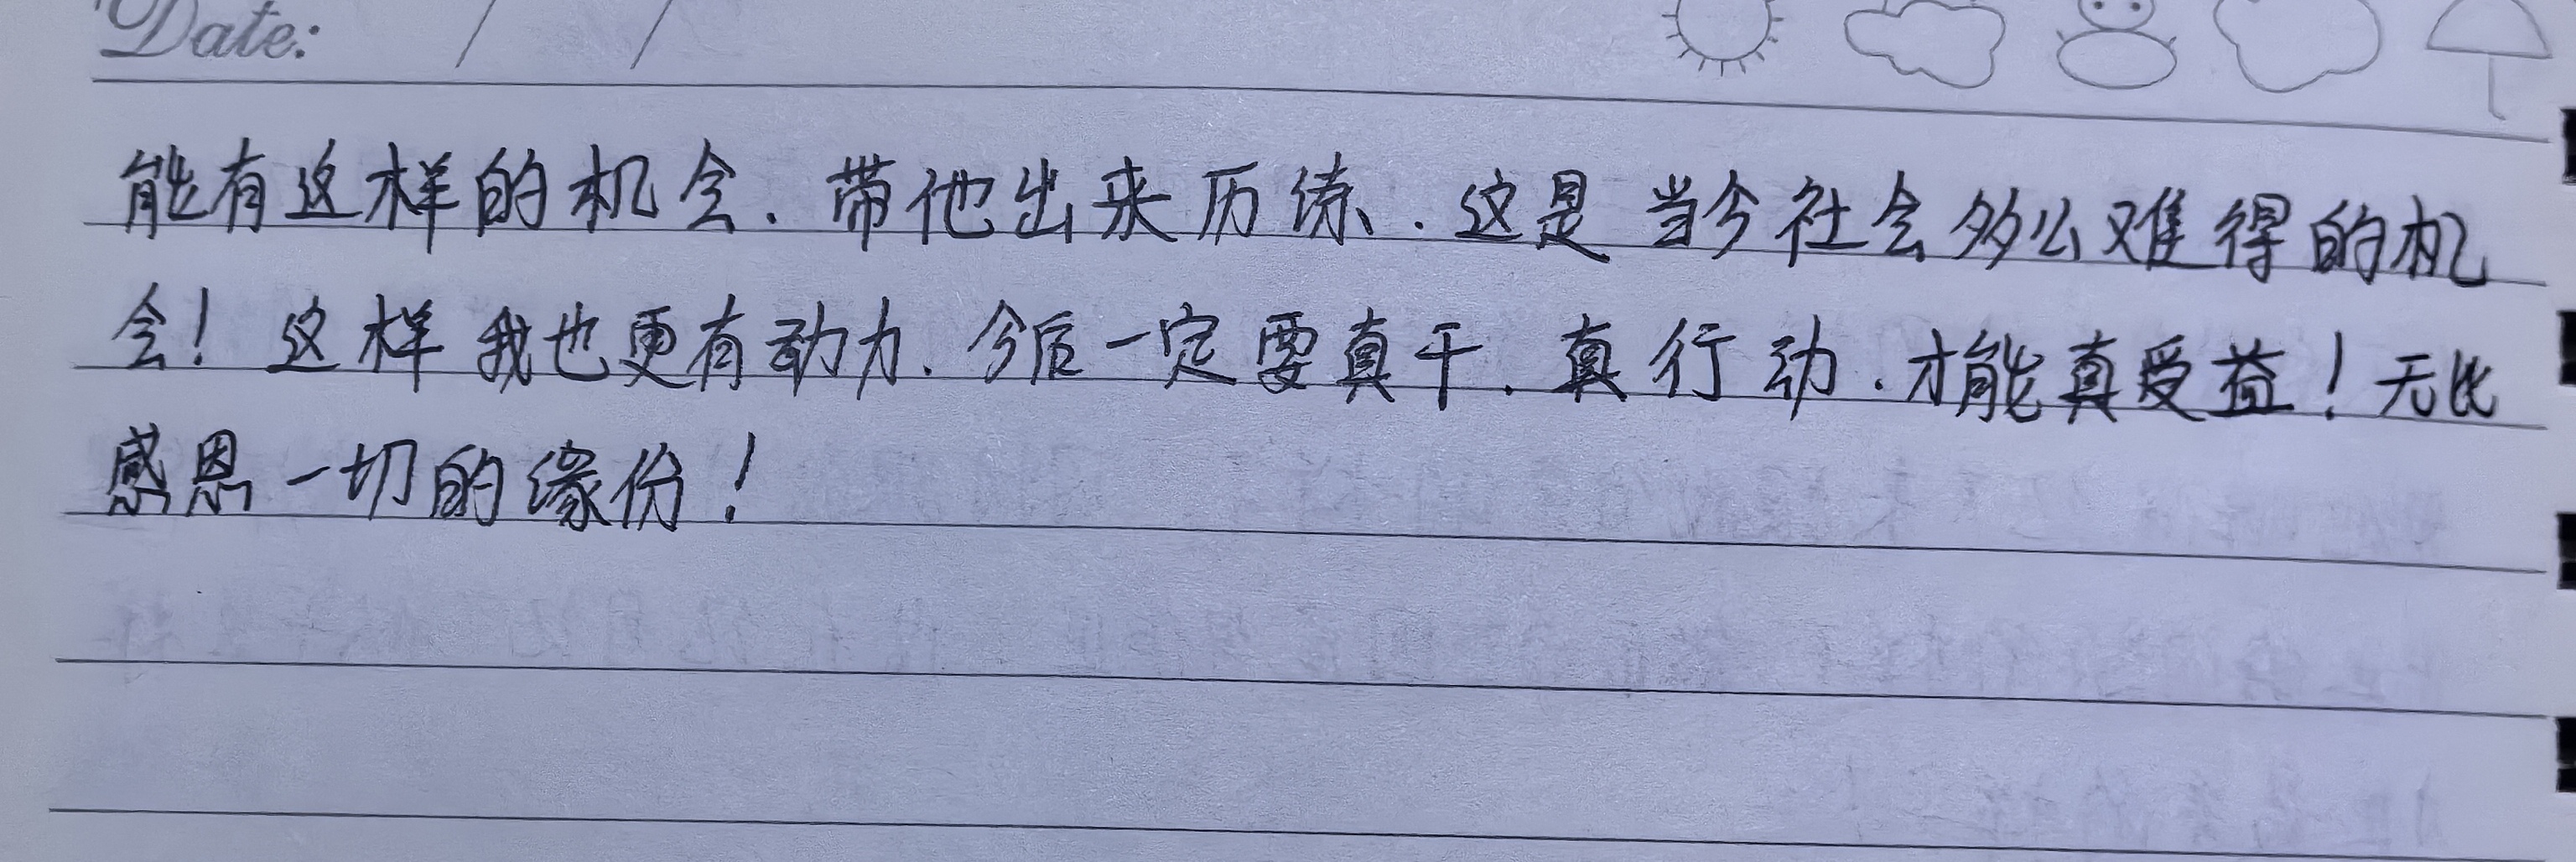 Date: / /
能有这样的机会.带他出来历练.这是当今社会多么难得的机
会！这样我也更有动力.今后一定要真干.真行动.才能真受益！无比
感恩一切的缘份！